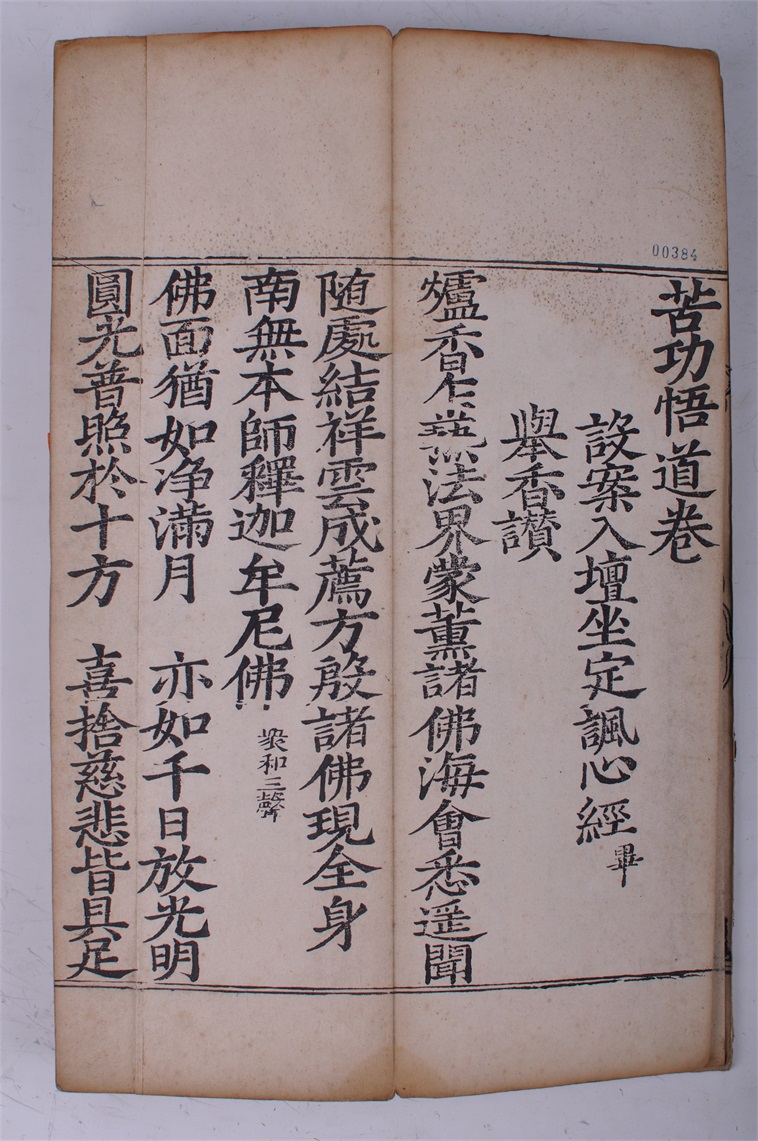 00384
苦功悟道卷
設案入壇坐定諷心經畢
舉香讃
爐香乍爇法界蒙薰諸佛海會悉遥聞
随處結祥雲成薦方殷諸佛現全身
南無本師釋迦牟尼佛 衆和三聲
佛面猶如净滿月 亦如千日放光明
圓光普照於十方 喜捨慈悲皆具足